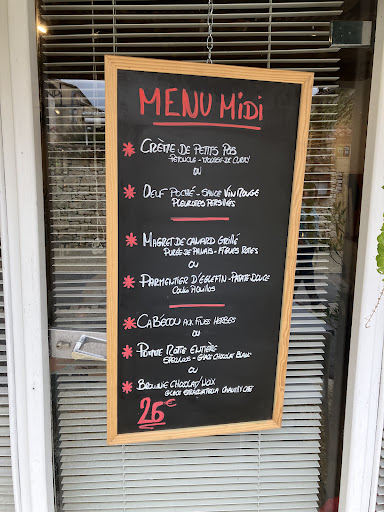 MENU MiDi
* CRÈME DE PETITS POIS
PÉTONCLE - MOUSSE DE CURRY
OU
* OEUF POCHÉ - SAUCE VIN ROUGE
PLEUROTES PERSILLÉES
* MAGRET DE CANARD GRILLÉ
PURÉE DE PANAIS - FIGUES ROTIES
OU
* PARMENTIER D'ÉGLEFIN - PATATE DOUCE
COULIS PIQUILLOS
* CABÉCOU AUX FINES HERBES
OU
* POMME ROTIE ENTIÈRE
SPÉCULOOS - GLACE CHOCOLAT BLANC
OU
* BROWNIE CHOCOLAT/NOIX
GLACE STRACCIATELLA CHANTILLY CAFÉ
26€